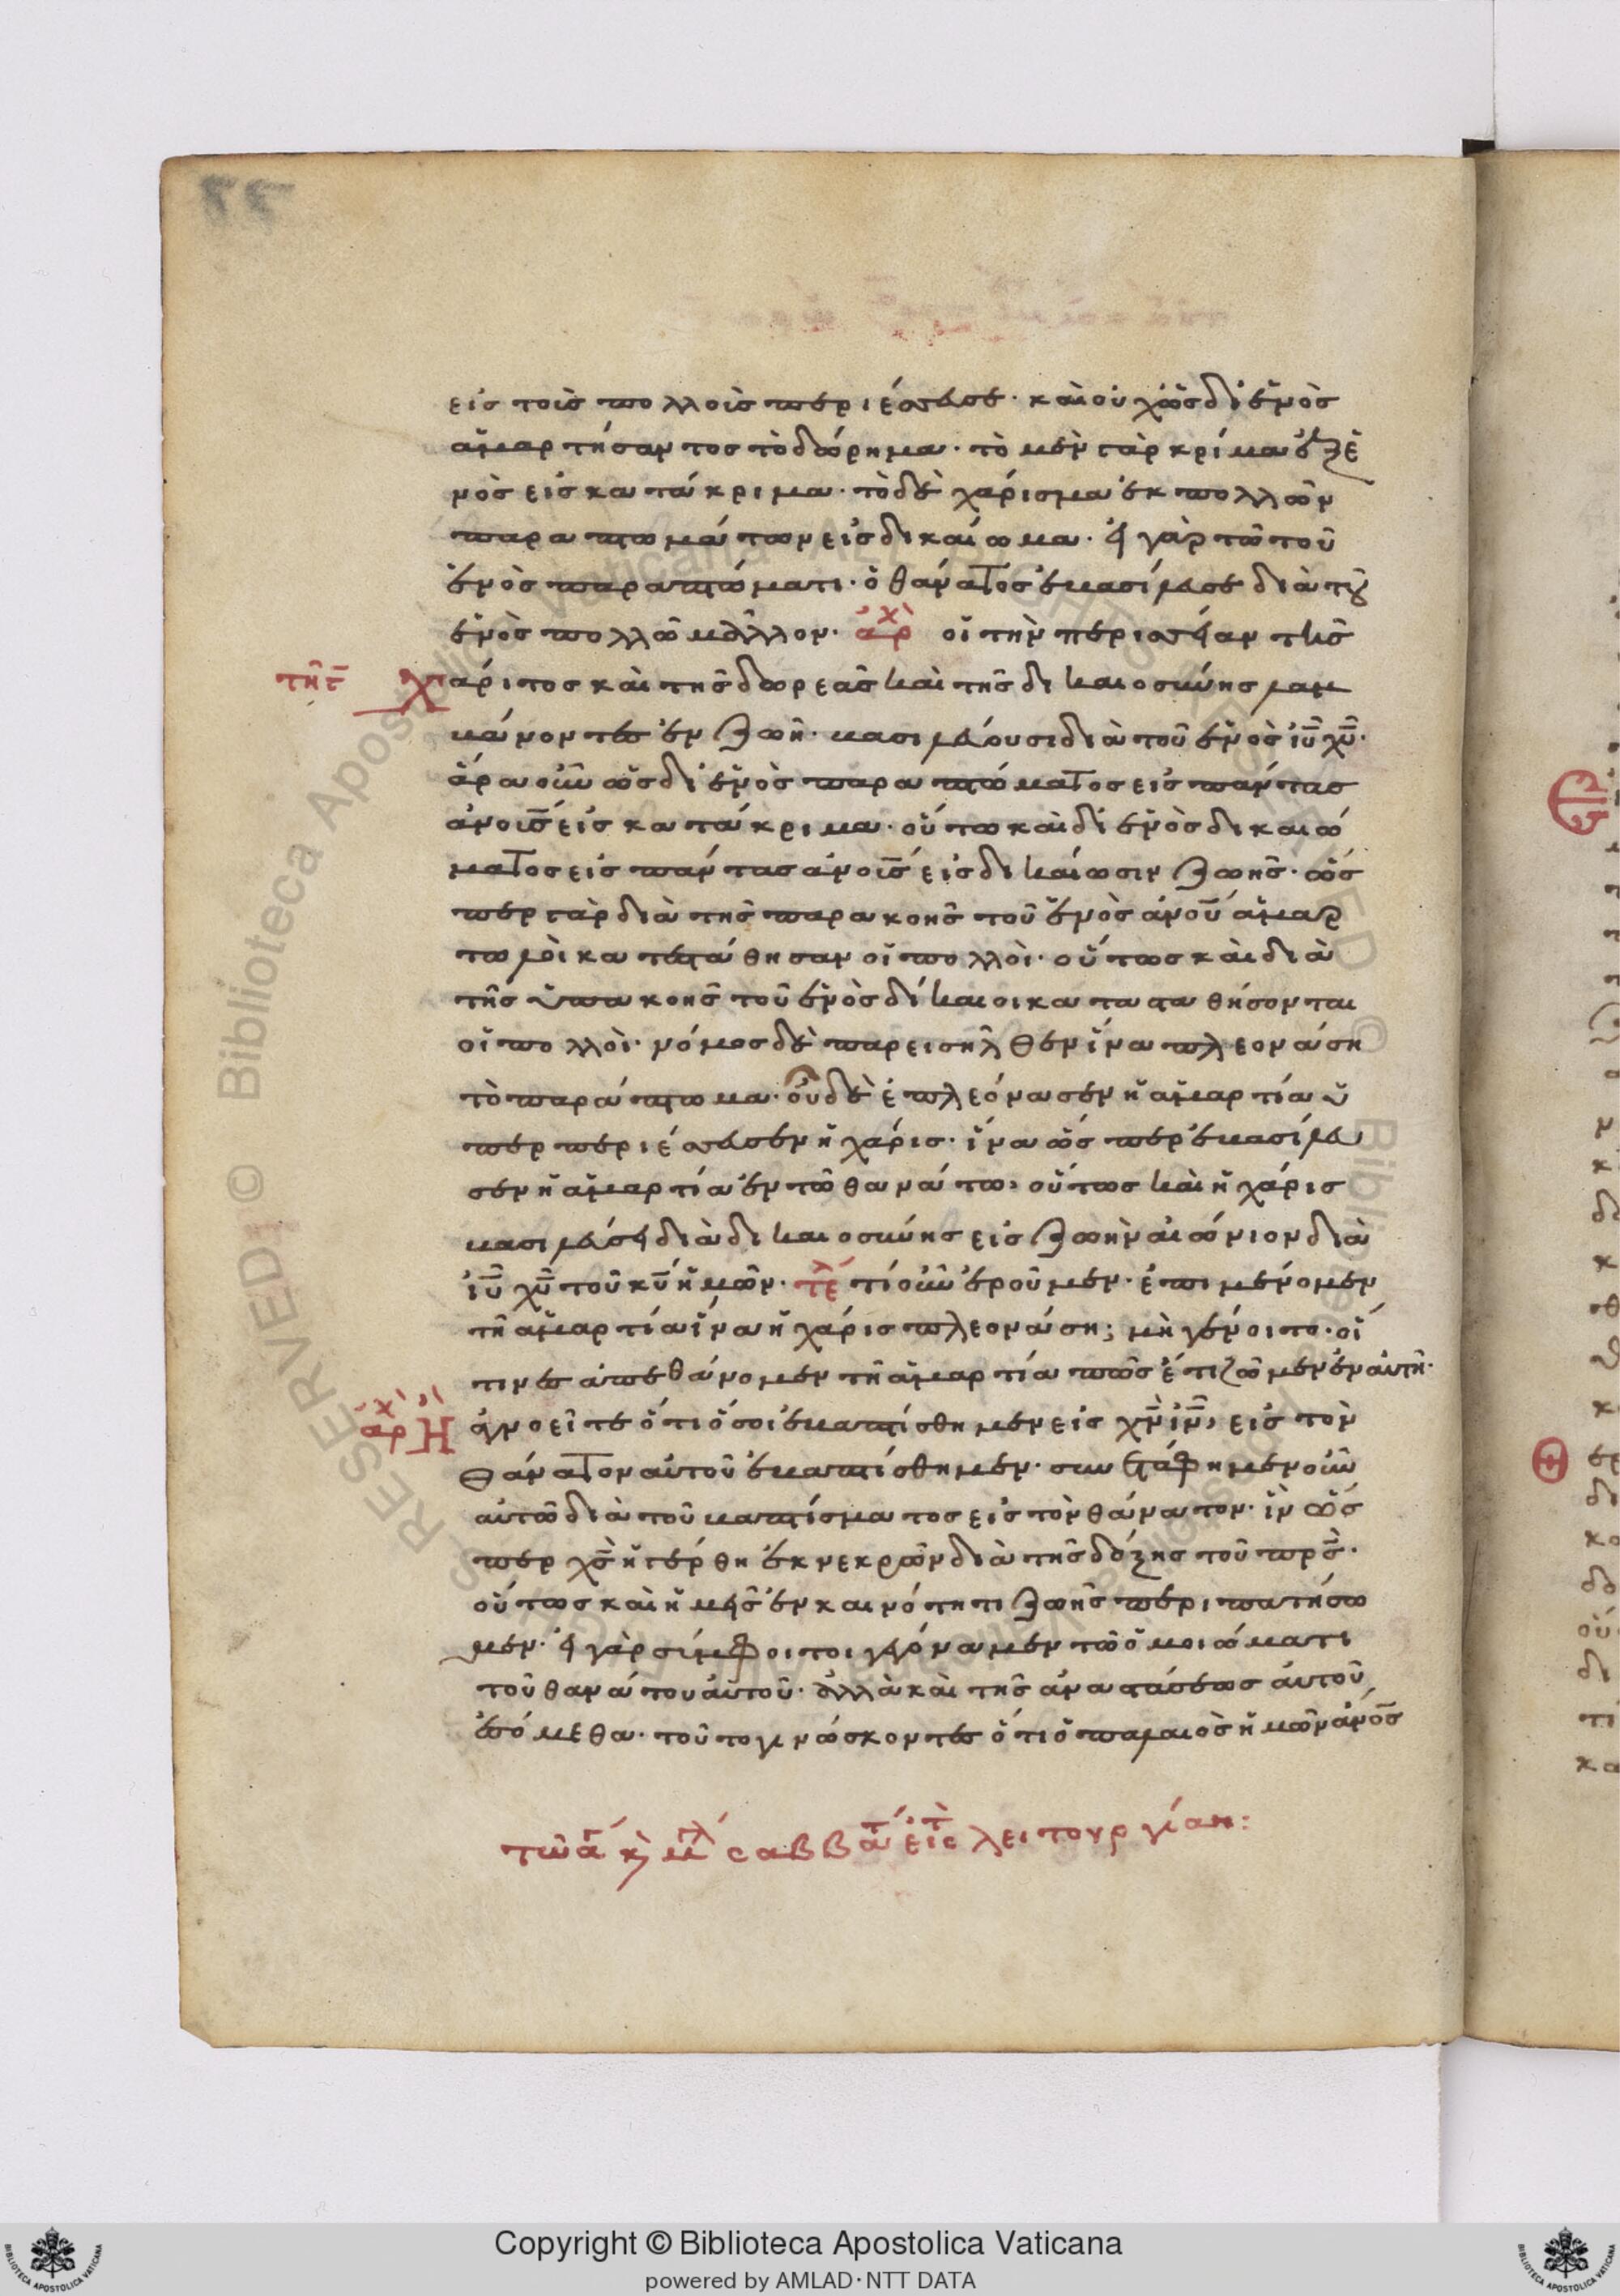 εἰς τοὺς πολλοὺς ἐπερίσσευσε· καὶ οὐχ ὡς δι ἑνὸς
ἁμαρτήσαντος τὸ δώρημα· τὸ μὲν γὰρ κρίμα ἐξ ἑ
νὸς εἰς κατάκριμα· τὸ δὲ χάρισμα ἐκ πολλῶν
παραπτωμάτων εἰς δικαίωμα· εἰ γὰρ τῶ τοῦ
ἑνὸς παραπτώματι· ὁ θάνατος ἐβασίλευσε διὰ τοῦ
ἑνὸς πολλῶ μᾶλλον· ἀρχ οἱ τὴν περισσείαν τῆς
χάριτος καὶ τῆς δωρεᾶς καὶ τῆς δικαιοσύνης λαμ
βάνοντες ἐν ζωῆ· βασιλεύουσι διὰ τοῦ ἑνὸς ιυ χυ·
ἄρα οὖν ὡς δι ἑνὸς παραπτώματος εἰς πάντας
ανοις εἰς κατάκριμα· οὕτω καὶ δι ἑνὸς δικαιώ
ματος εἰς πάντας ανοις εἰς δικαίωσιν ζωῆς· ὥσ
περ γὰρ διὰ τῆς παρακοῆς τοῦ ἑνὸς ανου ἁμαρ
τωλοὶ κατεστάθησαν οἱ πολλοὶ· οὕτως καὶ διὰ
τῆς ὑπακοῆς τοῦ ἑνὸς δίκαιοι κατασταθήσονται
οἱ πολλοὶ· νόμος δὲ παρεισῆλθεν ἵνα πλεονάση
τὸ παράπτωμα· οὗ δὲ ἐπλεόνασεν ἡ ἁμαρτία ὑ
περπερίεσσευσεν ἡ χάρις· ἵνα ὥσπερ ἐβασίλευ
σεν ἡ ἁμαρτία ἐν τῶ θανάτω, οὕτως καὶ ἡ χάρις
βασιλεύσει διὰ δικαιοσύνης εἰς ζωὴν αἰώνιον διὰ
ιυ χυ τοῦ κυ ἡμῶν· τε τί οὖν ἐροῦμεν· ἐπιμένομεν
τῆ ἁμαρτία ἵνα ἡ χάρις πλεονάση; μὴ γένοιτο· οἵ
τινες ἀπεθάνομεν τῆ ἁμαρτία πῶς ἔτι ζῶμεν ἐν αὐτῆ·
ἀρχ Ἢ ἀγνοεῖτε ὅτι ὅσοι ἐβαπτίσθημεν εἰς χν ιν, εἰς τὸν
θάνατον αὐτοῦ ἐβαπτίσθημεν· συνετάφημεν οὖν
αὐτῶ διὰ τοῦ βαπτίσματος εἰς τὸν θάνατον· ἵν ὥσ
περ χς ἠγέρθη ἐκ νεκρῶν διὰ τῆς δόξης τοῦ πρς·
οὕτως καὶ ἡμεῖς ἐν καινότητι ζωῆς περιπατήσω
μεν· εἰ γὰρ σύμφοιτοι γεγόναμεν τῶ ὁμοιώματι
τοῦ θανάτου αὐτοῦ· ἀλλὰ καὶ τῆς ἀναστάσεως αὐτοῦ
ἐσόμεθα· τοῦτο γινώσκοντες ὅτι ὁ παλαιὸς ἡμῶν ανος
τῶ ἁγ κ μγλ σαββατ εἰς τ λειτουργίαν: